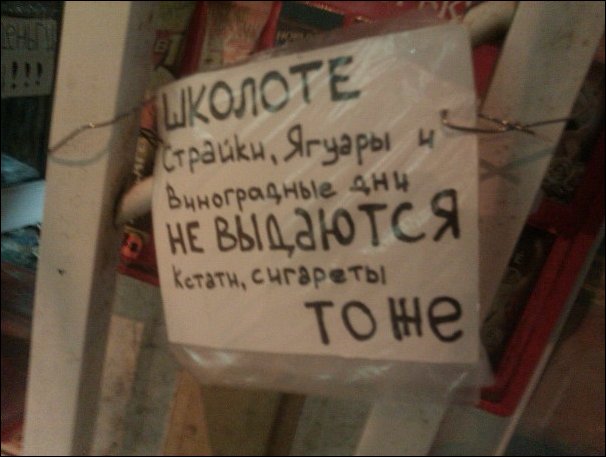 ДЕНЬГИ
!!!
ШКОЛОТЕ
Страйки, Ягуары и
Виноградные дни
НЕ ВЫДАЮТСЯ
Кстати, сигареты
ТОЖЕ